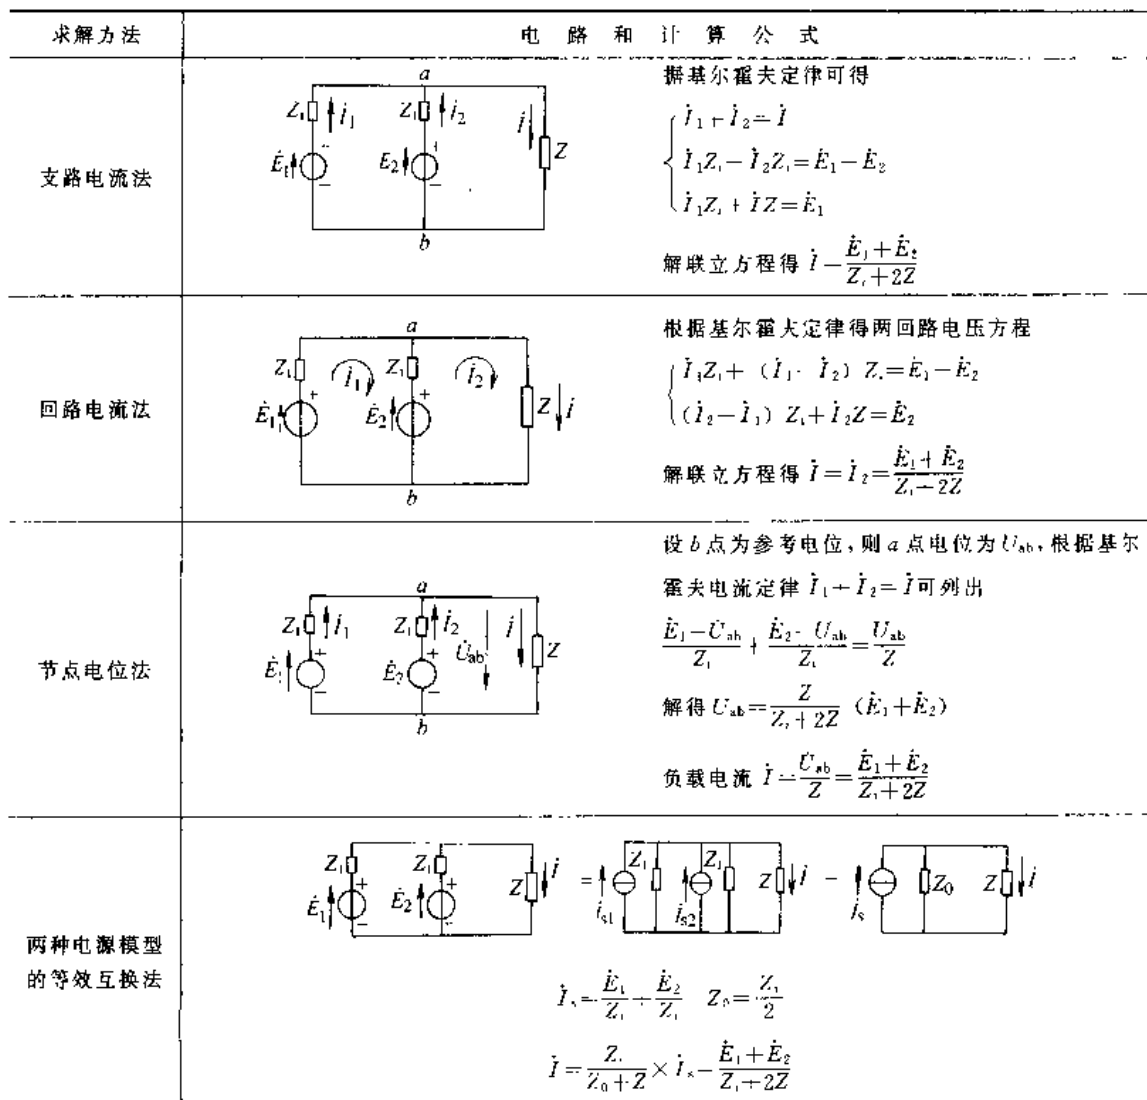 求解方法 电路和计算公式
支路电流法
a
Z₁ İ₁ Z₁ İ₂ İ Z
Ė₁ E₂
b
据基尔霍夫定律可得
İ₁+İ₂=İ
İ₁Z₁-İ₂Z₁=Ė₁-Ė₂
İ₁Z₁+İZ=Ė₁
解联立方程得 İ=(Ė₁+Ė₂)/(Z₁+2Z)
回路电流法
a
Z₁ İ₁ Z₁ İ₂
Ė₁ Ė₂ Z İ
b
根据基尔霍夫定律得两回路电压方程
İ₁Z₁+(İ₁-İ₂)Z₁=Ė₁-Ė₂
(İ₂-İ₁)Z₁+İ₂Z=Ė₂
解联立方程得 İ=İ₂=(Ė₁+Ė₂)/(Z₁+2Z)
节点电位法
a
Z₁ İ₁ Z₁ İ₂ İ Z
Ė₁ Ė₂ U̇ab
b
设b点为参考电位,则a点电位为U̇ab,根据基尔
霍夫电流定律 İ₁+İ₂=İ可列出
(Ė₁-U̇ab)/Z₁+(Ė₂-U̇ab)/Z₁=U̇ab/Z
解得 U̇ab=Z/(Z₁+2Z) (Ė₁+Ė₂)
负载电流 İ=U̇ab/Z=(Ė₁+Ė₂)/(Z₁+2Z)
两种电源模型
的等效互换法
Z₁ Z₁ Z İ = Z₁ Z₁ Z İ = Z₀ Z İ
Ė₁ Ė₂ İs1 İs2 İs
İs=Ė₁/Z₁+Ė₂/Z₁ Z₀=Z₁/2
İ=Z₀/(Z₀+Z)×İs=(Ė₁+Ė₂)/(Z₁+2Z)